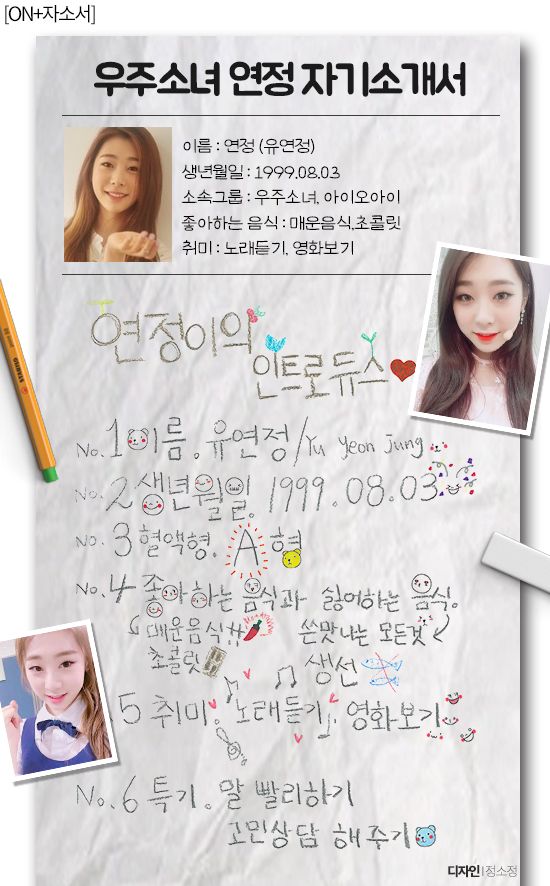 [ON+자소서]
우주소녀 연정 자기소개서
이름 : 연정 (유연정)
생년월일 : 1999.08.03
소속그룹 : 우주소녀, 아이오아이
좋아하는 음식 : 매운음식,초콜릿
취미 : 노래듣기, 영화보기
연정이의
인트로듀스
No. 1 이름. 유연정/Yu Yeon Jung
No. 2 생년월일. 1999.08.03
No. 3 혈액형. A형
No. 4 좋아하는 음식과 싫어하는 음식.
매운음식 쓴맛나는 모든것
초콜릿 생선
5 취미. 노래듣기, 영화보기
No. 6 특기. 말 빨리하기
고민상담 해주기
디자인 | 정소정